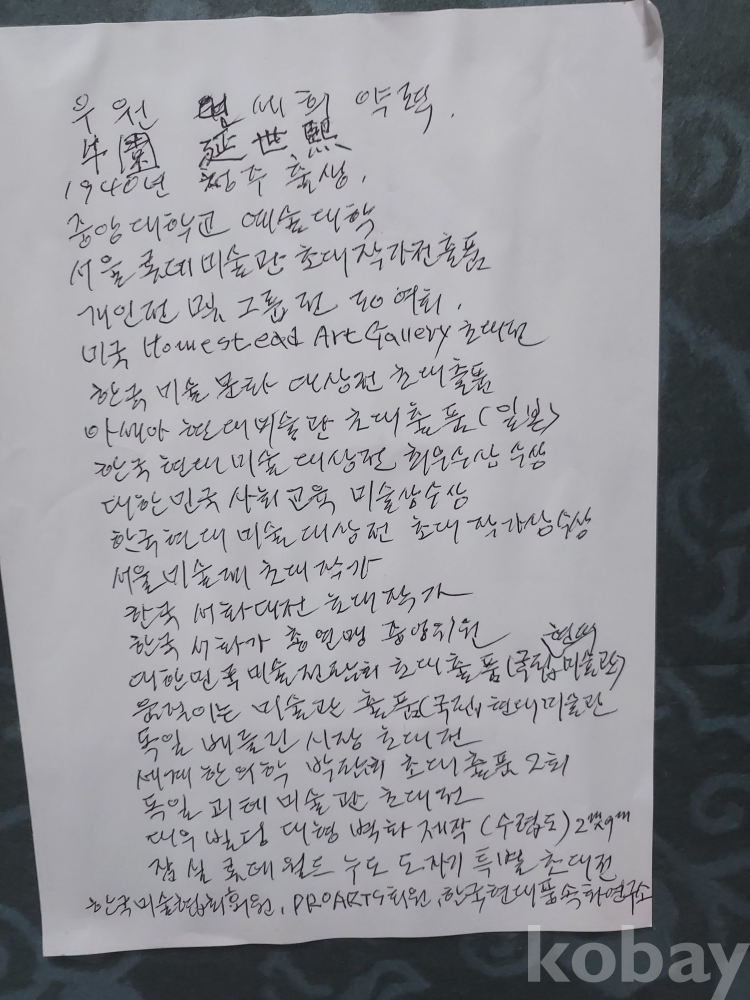 우원 연세희 약력.
牛園 延世熙
1940년 청주 출생.
중앙대학교 예술대학
서울 롯데미술관 초대작가전출품
개인전 및 그룹전 50여회.
미국 Homestead Art Gallery 초대전
한국 미술문화 대상전 초대출품
아세아 현대미술관 초대출품(일본)
한국현대미술대상전 최우수상 수상
대한민국 사회교육 미술상수상
한국현대미술대상전 초대작가상수상
서울미술제 초대작가
한국 서화대전 초대작가
한국 서화가 총연맹 중앙위원
대한민국미술전람회 초대출품(국립현대미술관)
움직이는 미술관 출품(국립현대미술관
독일 베를린시장 초대전
세계한의학 박람회 초대출품 2회
독일 괴테미술관 초대전
대우빌딩 대형벽화제작(수렵도)
잠실 롯데월드 누드 도자기 특별초대전
한국미술협회회원, PROARTS회원, 한국현대풍속화연구소
kobay